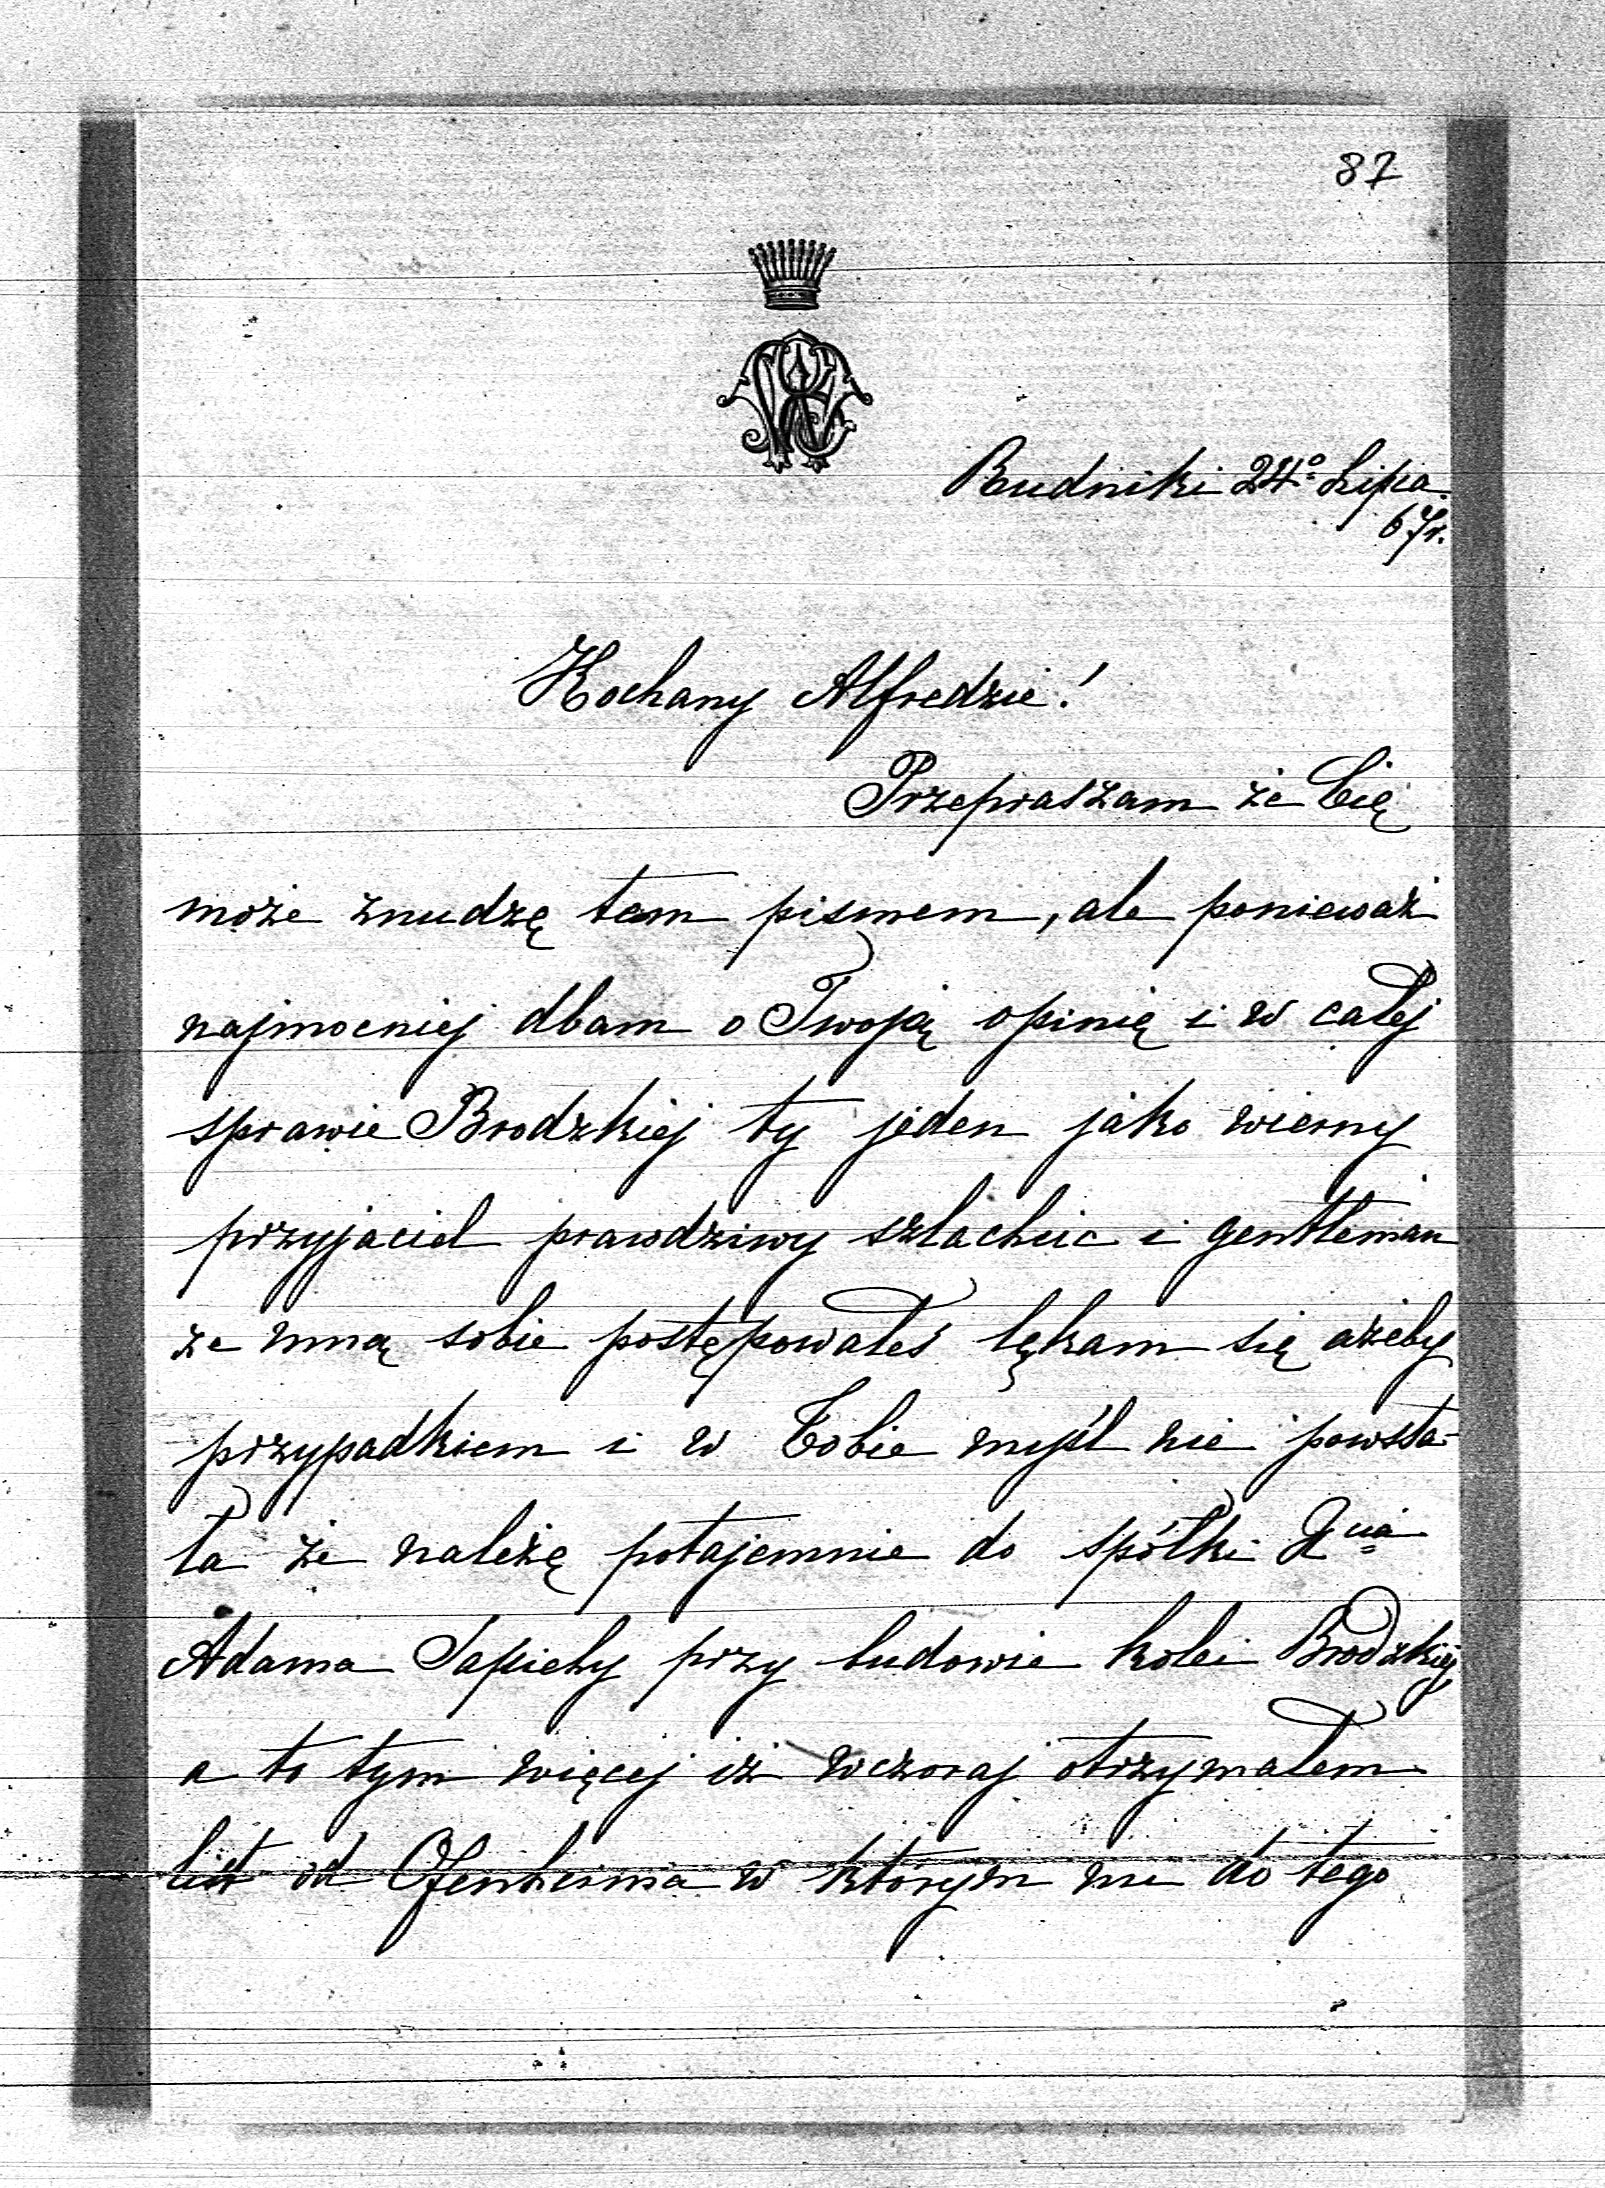 87
Rudniki 24º Lipca
67r.
Kochany Alfredzie!
Przepraszam że Cię
może znudzę tem pismem, ale ponieważ
najmocniej dbam o Twoją opinię i w całej
sprawie Brodzkiej ty jeden jako wierny
przyjaciel prawdziwy szlachcic i gentleman
ze mną sobie postępowałeś lękam się ażeby
przypadkiem i w Tobie myśl nie powsta-
ła że należę potajemnie do spółki Xcia
Adama Sapiehy przy budowie kolei Brodzkiej
a to tym więcej iż wczoraj otrzymałem
list od Ofenheima w którym mi do tego